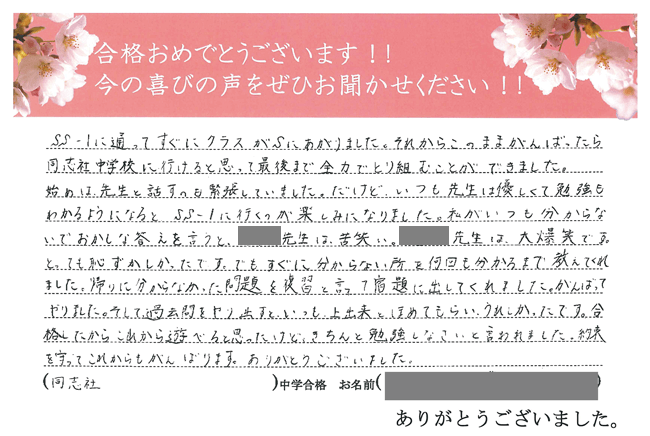 合格おめでとうございます！！
今の喜びの声をぜひお聞かせください！！
SS-1に通ってすぐにクラスがSにあがりました。それからこのままがんばったら
同志社中学校に行けると思って最後まで全力でとり組むことができました。
始めは先生と話すのも緊張していました。だけど、いつも先生は優しくて勉強も
わかるようになると SS-1に行くのが楽しみになりました。私がいつも分からな
いでおかしな答えを言うと、先生は苦笑い。先生は、大爆笑です。
とても恥ずかしかったです。でもすぐに分からない所を何回も分かるまで教えてくれ
ました。帰りに分からなかった問題を復習と言って宿題に出してくれました。がんばって
やりました。そして過去問をやり出すと、いつも上出来とほめてもらいうれしかったです。合
格したからこれから遊べると思ったけど、きちんと勉強しなさいと言われました。約束
を守ってこれからもがんばります。ありがとうございました。
(同志社 )中学合格 お名前( )
ありがとうございました。